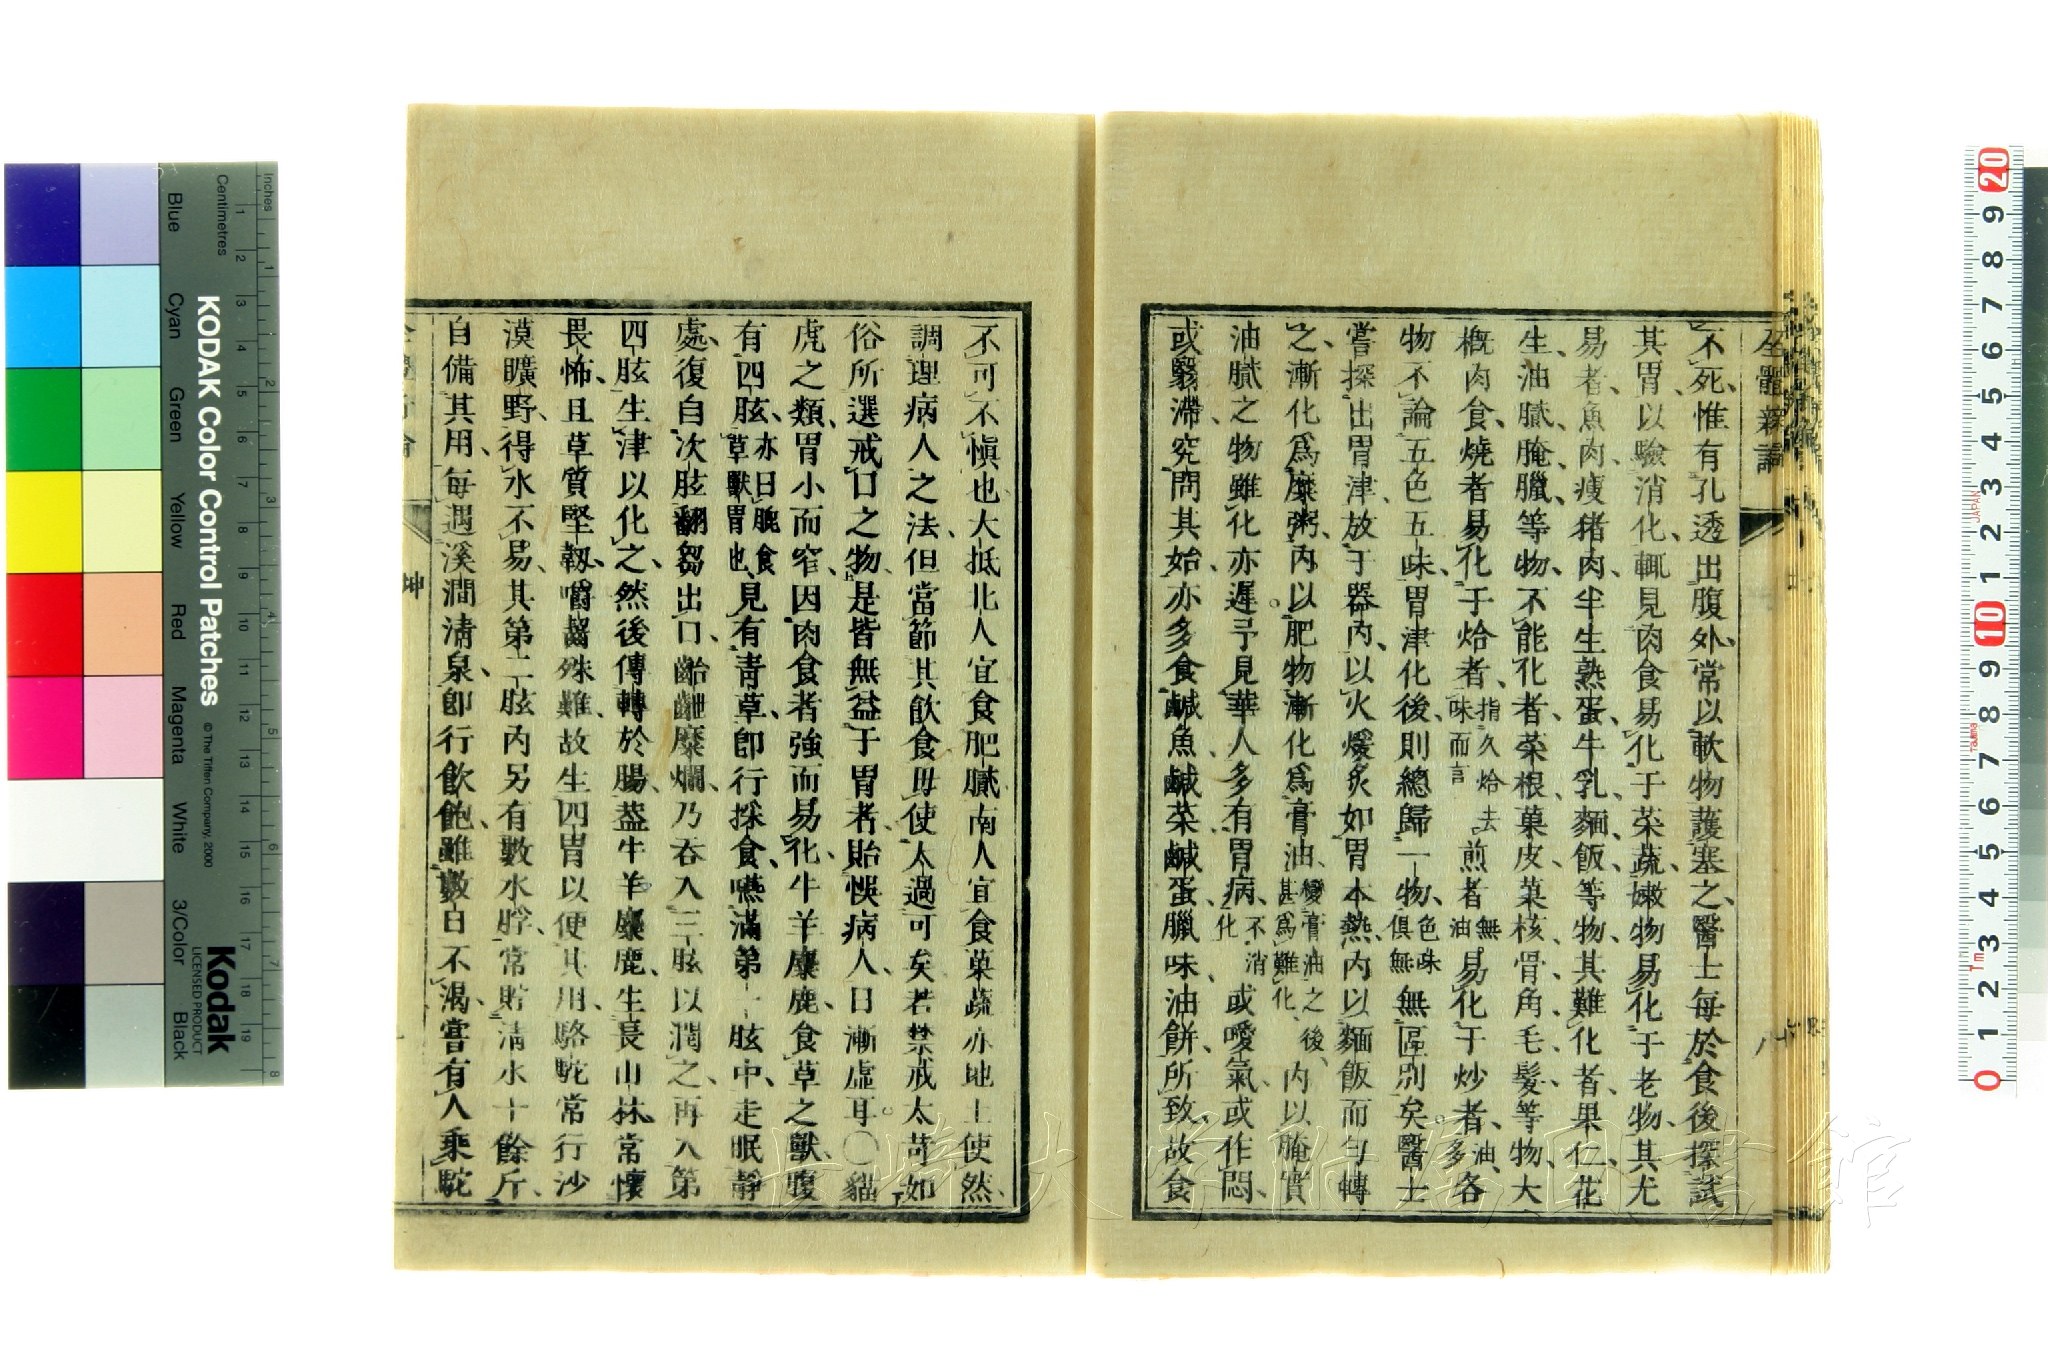 全體新論
不死、惟有孔透出腹外、常以軟物護塞之、醫士每於食後探試
其胃、以驗消化、輒見肉食易化于菜蔬、嫩物易化于老物、其尤
易者、魚肉瘦猪肉半生熟蛋牛乳麵飯等物、其難化者、果仁花
生、油膩腌臘等物、不能化者、菜根菓皮菓核骨角毛髮等物、大
概肉食、燒者易化于烚者、指久烚去味而言煎者無油易化于炒者、多油各
物不論五色五味、胃津化後、則總歸一物、色味俱無無區別矣、醫士
嘗探出胃津、放于器內、以火煖炙如胃本熱、內以麵飯而勻轉
之、漸化爲糜粥、內以肥物漸化爲膏油、變膏油之後、甚爲難化、內以腌實
油膩之物雖化亦遲、予見華人多有胃病、不消化或噯氣或作悶、
或翳滯、究問其始、亦多食鹹魚鹹菜鹹蛋臘味油餅所致、故食
不可不慎也、大抵北人宜食肥膩、南人宜食菓蔬、亦地土使然、
調理病人之法、但當節其飲食、毋使太過可矣、若禁戒太苛、如
俗所選戒口之物、是皆無益于胃者、貽悞病人日漸虛耳○貓
虎之類、胃小而窄、因肉食者強而易化、牛羊麋鹿食草之獸、腹
有四胘、亦曰膍食草獸胃也見有青草、即行採食、嚥滿第一胘中、走眠靜
處、復自次胘翻芻出口、齝齛糜爛、乃吞入三胘以潤之、再入第
四胘生津以化之、然後傳轉於腸、葢牛羊麋鹿、生長山林、常懷
畏怖、且草質堅韌、嚼齧殊難、故生四胃、以便其用、駱駝常行沙
漠曠野、得水不易、其第二胘內另有數水脬、常貯清水十餘斤、
自備其用、每遇溪澗清泉、即行飲飽、雖數日不渴、嘗有人乘駝
坤
KODAK Color Control Patches
© The Tiffen Company, 2000
Kodak
LICENSED PRODUCT
Inches
Centimetres
Blue
Cyan
Green
Yellow
Red
Magenta
White
3/Color
Black
長崎大学附属図書館
JAPAN
Tajima